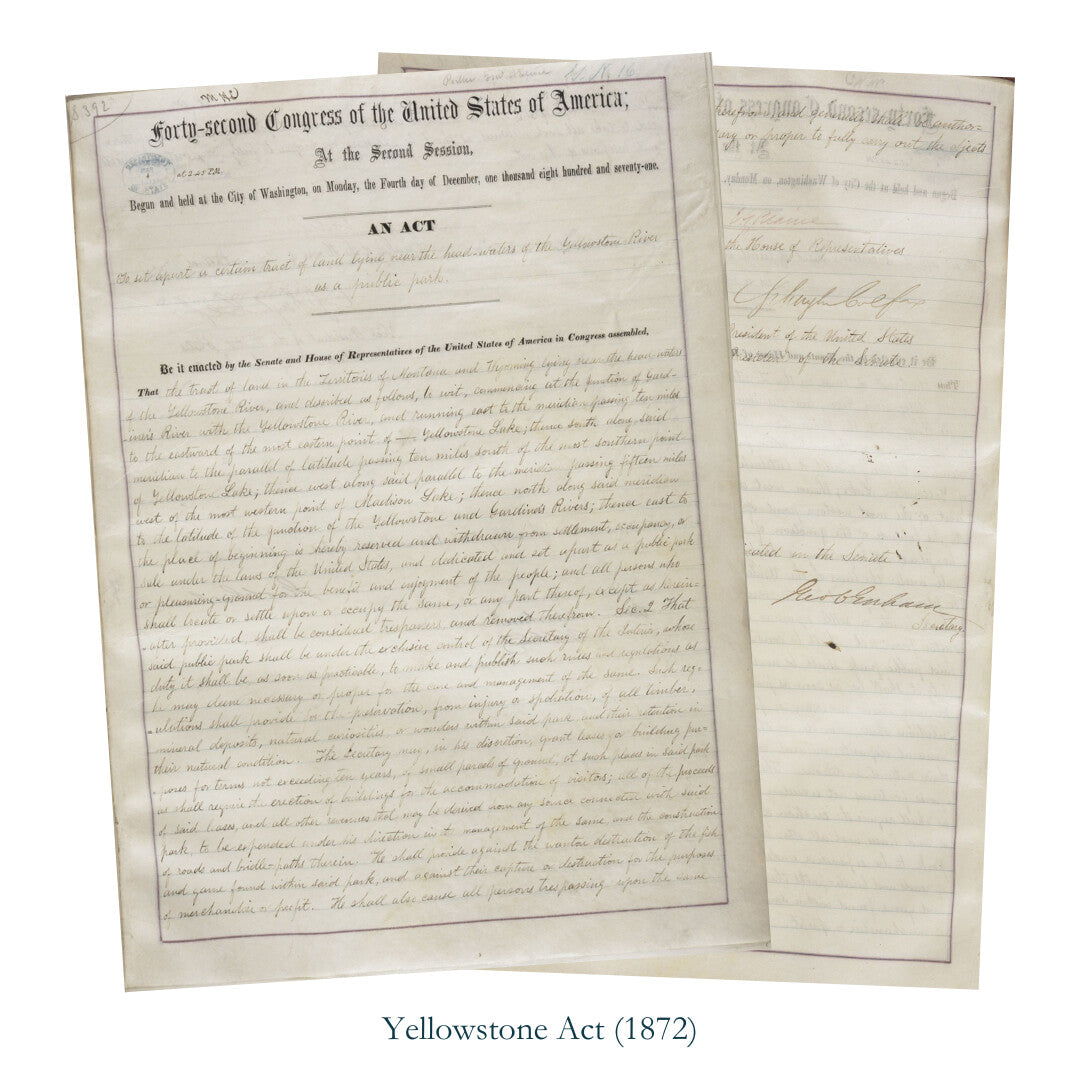 8392
Forty-second Congress of the United States of America;
At the Second Session,
at 2.45 P.M.
Begun and held at the City of Washington, on Monday, the Fourth day of December, one thousand eight hundred and seventy-one.
AN ACT
To set apart a certain tract of land lying near the head-waters of the Yellowstone River
as a public park.
Be it enacted by the Senate and House of Representatives of the United States of America in Congress assembled,
That the tract of land in the Territories of Montana and Wyoming lying near the head-waters
of the Yellowstone River, and described as follows, to wit, commencing at the junction of Gard-
iner's River with the Yellowstone River, and running east to the meridian passing ten miles
to the eastward of the most eastern point of Yellowstone Lake; thence south along said
meridian to the parallel of latitude passing ten miles south of the most southern point
of Yellowstone Lake; thence west along said parallel to the meridian passing fifteen miles
west of the most western point of Madison Lake; thence north along said meridian
to the latitude of the junction of the Yellowstone and Gardiner's Rivers; thence east to
the place of beginning is hereby reserved and withdrawn from settlement, occupancy, or
sale under the laws of the United States, and dedicated and set apart as a public park
or pleasuring-ground for the benefit and enjoyment of the people; and all persons who
shall locate or settle upon or occupy the same, or any part thereof, except as herein-
after provided, shall be considered trespassers, and removed therefrom. Sec. 2. That
said public park shall be under the exclusive control of the Secretary of the Interior, whose
duty it shall be, as soon as practicable, to make and publish such rules and regulations as
he may deem necessary or proper for the care and management of the same. Such reg-
ulations shall provide for the preservation, from injury or spoliation, of all timber,
mineral deposits, natural curiosities, or wonders within said park, and their retention in
their natural condition. The Secretary may, in his discretion, grant leases for building pur-
poses for terms not exceeding ten years, of small parcels of ground, at such places in said park
as shall require the erection of buildings for the accommodation of visitors; all of the proceeds
of said leases, and all other revenues that may be derived from any source connected with said
park, to be expended under his direction in the management of the same, and the construction
of roads and bridle-paths therein. He shall provide against the wanton destruction of the fish
and game found within said park, and against their capture or destruction for the purposes
of merchandise or profit. He shall also cause all persons trespassing upon the same
therefrom, and generally shall be autho-
ary or proper to fully carry out the objects
the House of Representatives
Schuyler Colfax
President of the United States
of the Senate
cated in the Senate
Geo C Gorham
Secretary
Yellowstone Act (1872)